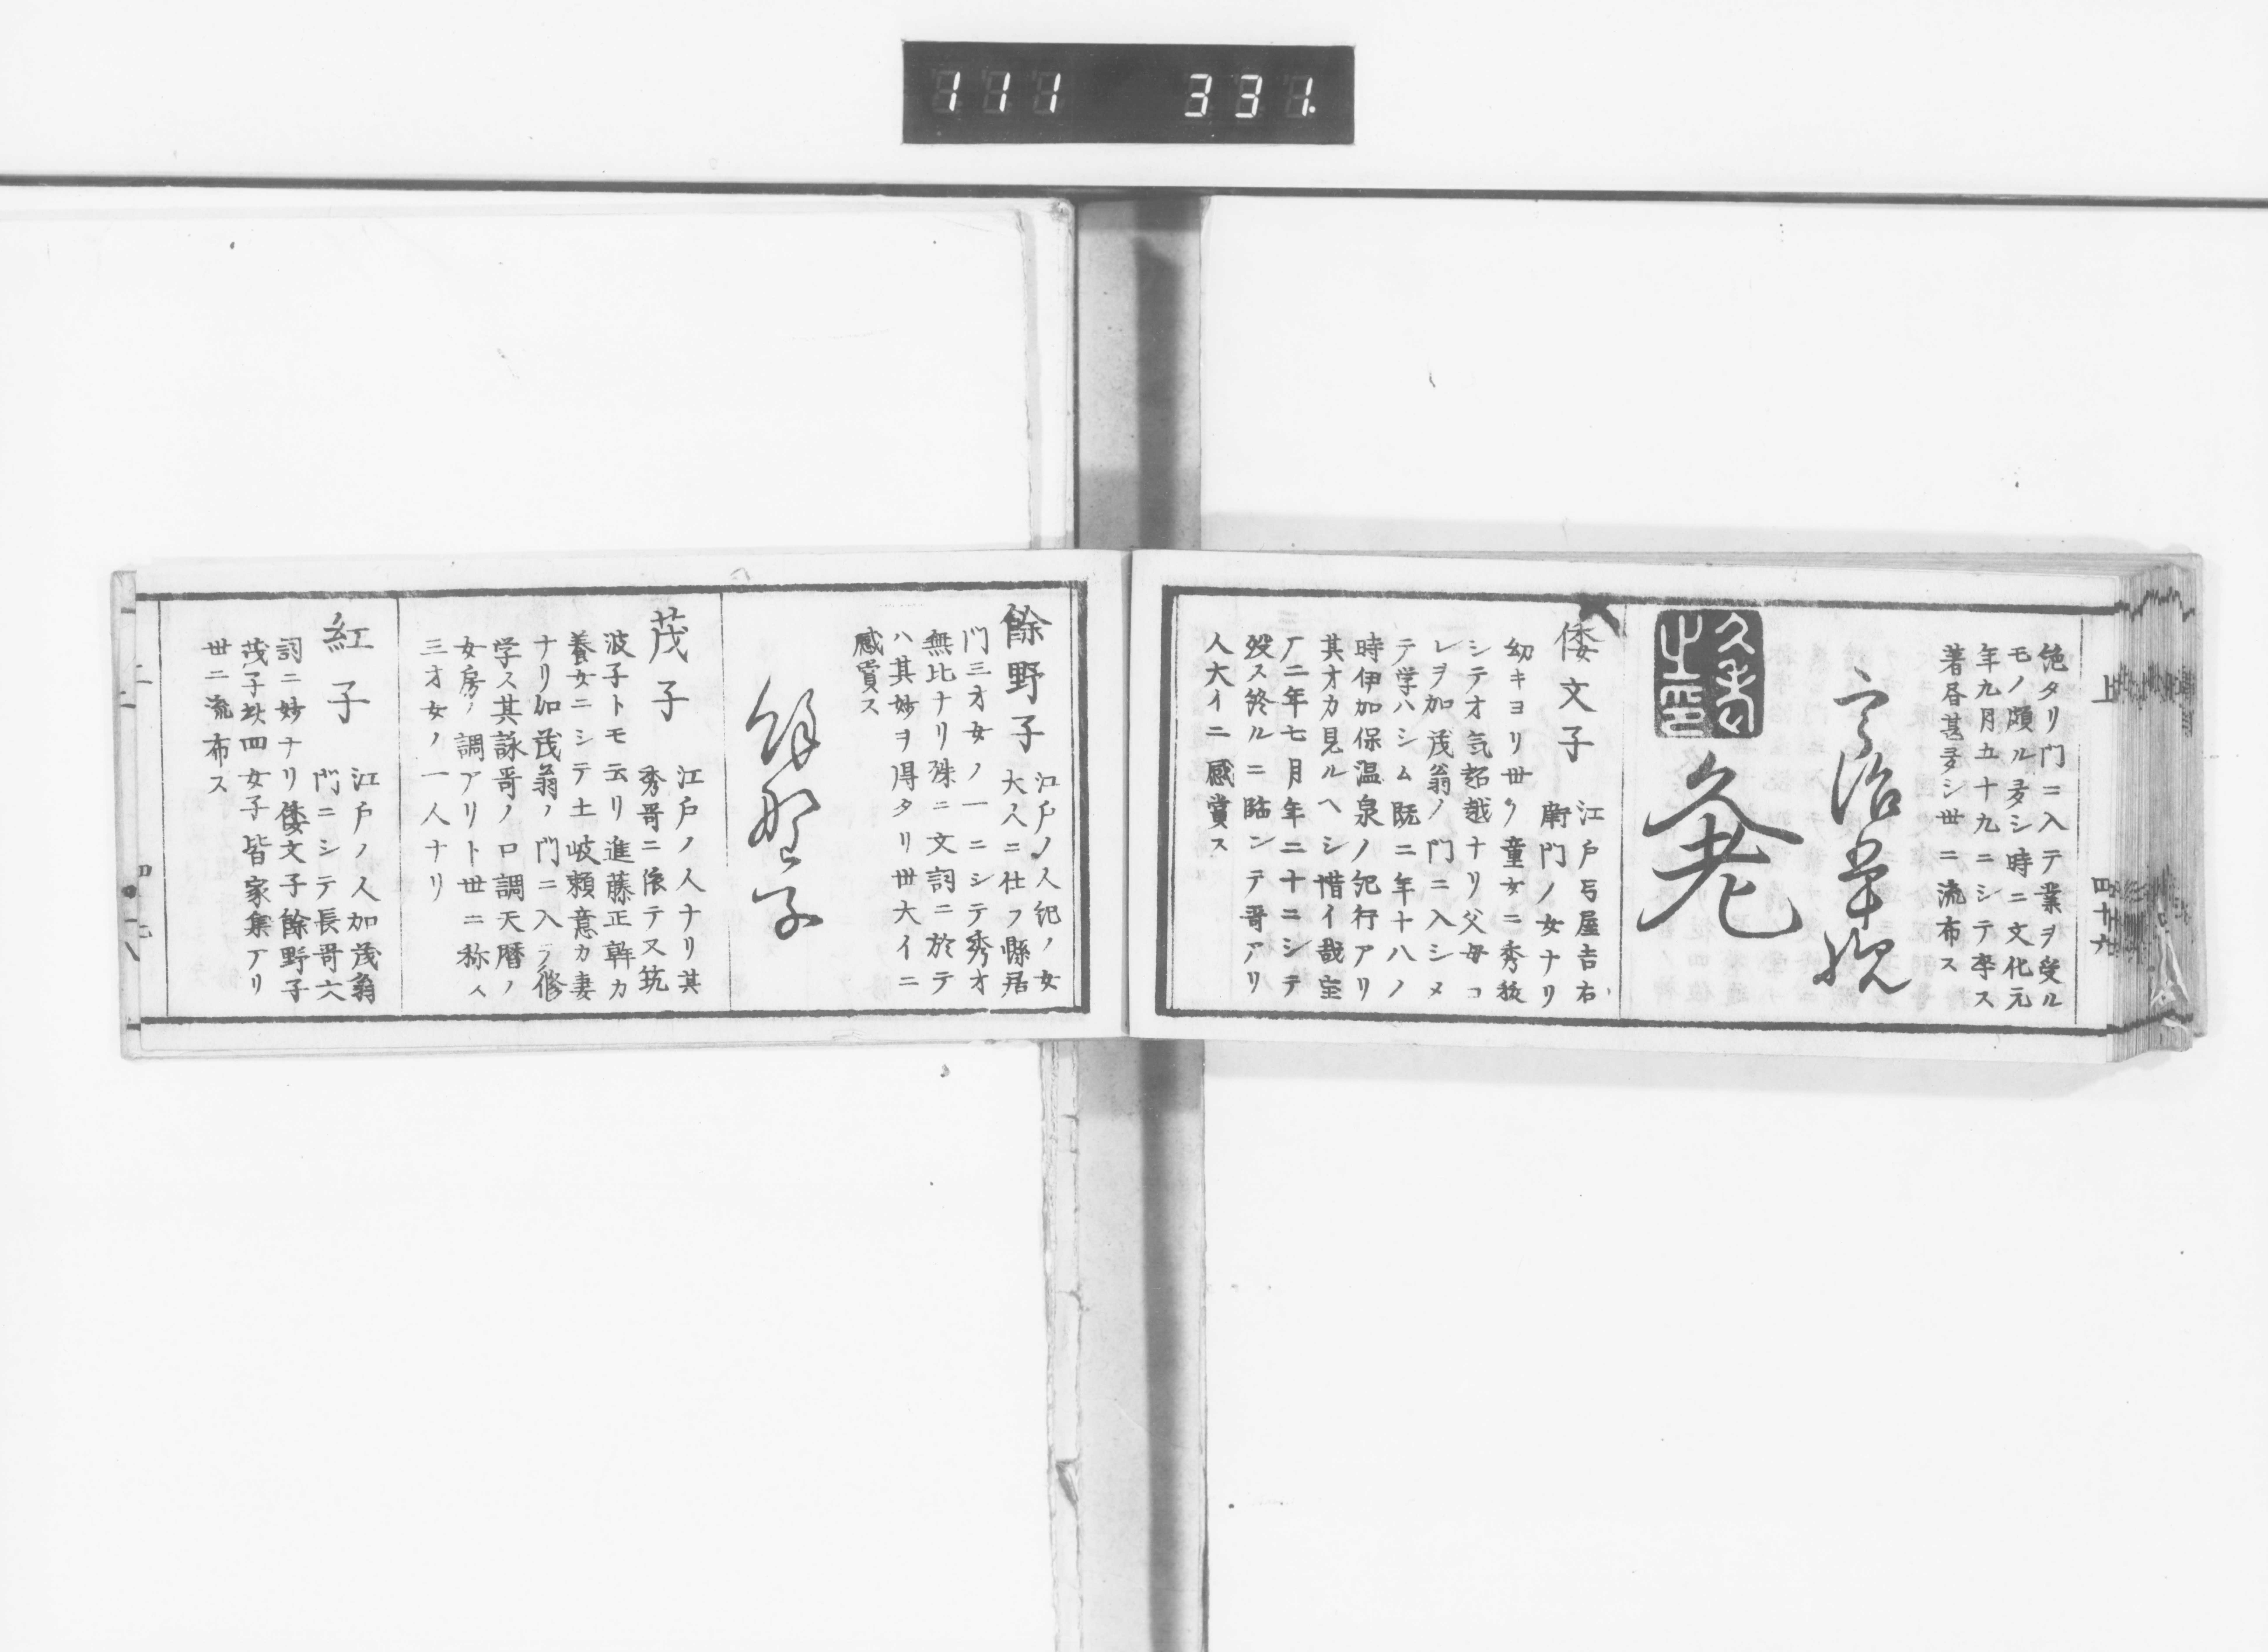 111 331.
絶タリ門ニ入テ業ヲ受ル
モノ頗ル多シ時ニ文化元
年九月五十九ニシテ卒ス
著昏甚多シ世ニ流布ス
倭文子
江戸弓屋吉右
衛門ノ女ナリ
幼キヨリ世々童女ニ秀抜
シテオ気超越ナリ父母コ
レヲ加茂翁ノ門ニ入シメ
テ学ハシム既ニ年十八ノ
時伊加保温泉ノ紀行アリ
其オカ見ルヘシ惜イ哉宝
厂二年七月年二十ニシテ
歿ス終ルニ臨ンテ哥アリ
人大イニ感賞ス
上
四十六
餘野子
江戸ノ人紀ノ女
大人ニ仕フ縣居
門三才女ノ一ニシテ秀オ
無比ナリ殊ニ文詞ニ於テ
ハ其妙ヲ得タリ世大イニ
感賞ス
餘野子
茂子
江戸ノ人ナリ其
秀哥ニ依テ又筑
波子トモ云リ進藤正幹カ
養女ニシテ土岐頼意カ妻
ナリ加茂翁ノ門ニ入ラ修
学ス其詠哥ノ口調天暦ノ
女房ノ調アリト世ニ称ス
三才女ノ一人ナリ
紅子
江戸ノ人加茂翁
門ニシテ長哥六
詞ニ妙ナリ倭文子餘野子
茂子玆四女子皆家集アリ
世ニ流布ス